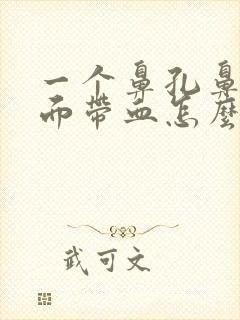 一个鼻孔鼻
而带血怎麼
武可文